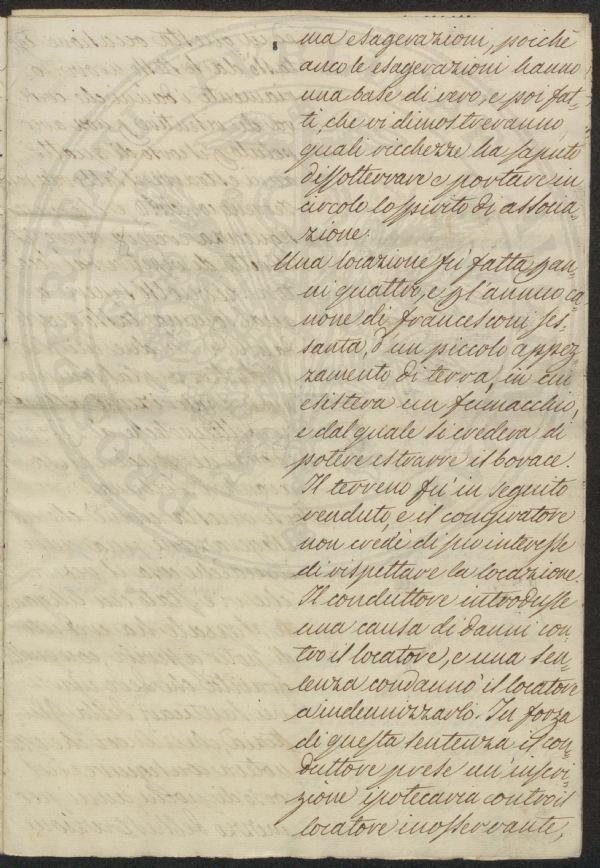 ma esagerazioni, poichè
anco le esagerazioni hanno
una base di vero, e poi fat=
ti, che vi dimostreranno
quali ricchezze ha saputo
dissotterrare e portare in
circolo lo spirito di associa=
zione.
Una locazione fù fatta p an=
ni quattro, e pl'annuo ca=
none di francesconi ses=
santa, d'un piccolo appez=
zamento di terra, in cui
esisteva un fumacchio,
e dal quale si credeva di
potere estrarre il borace.
Il terreno fù in seguito
venduto, e il compratore
non credè di pio interesse
di rispettare la locazione.
Il conduttore introdusse
una causa di danni con=
tro il locatore, e una sen=
tenza condannò il locatore
a indennizzarlo. In forza
di questa sentenza il con=
duttore prese un'inscri=
zione ipotecaria contro il
locatore inosservante,